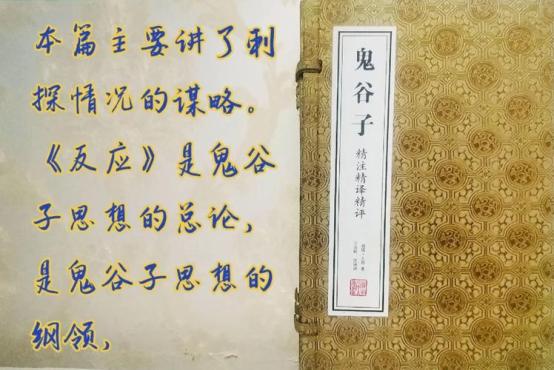 本篇主要讲了刺
探情况的谋略。
《反应》是鬼谷
子思想的总论,
是鬼谷子思想的
纲领,
鬼谷子
精注精译精评